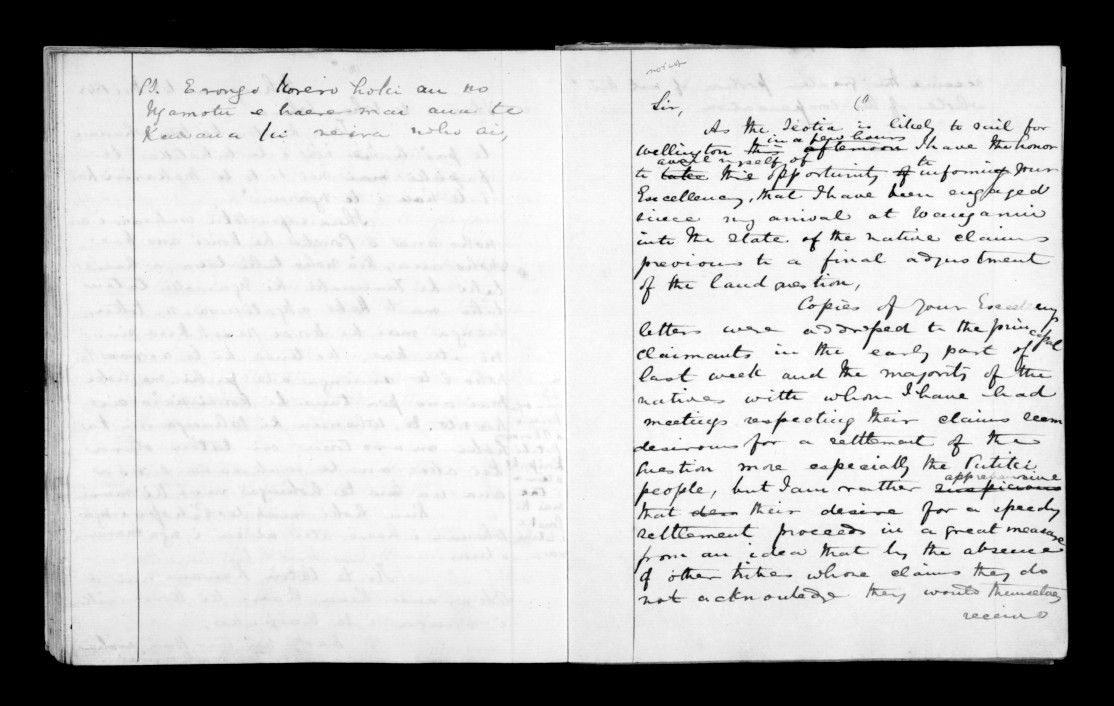 E rongo korero hoki au no
Ngamotu e haere mai ana te
Kawana ki reira noho ai,
Sir,
As the Scotia is likely to sail for
in a few hours
Wellington this afternoon I have the honor
avail myself of
to take this opportunity of to informing Your
Excellency, that I have been engaged
since my arrival at Wanganui
into the state of the native claims
previous to a final adjustment
of the land question,
Copies of Your Excellency
letters were addressed to the principal
claimants in the early part of
last week and the majority of the
natives with whom I have had
meetings respecting their claims seem
desirous for a settlement of the
question more especially the Putiki
apprehensive
people, but I am rather suspicious
that their desire for a speedy
settlement proceeds in a great measure
from an idea that by the absence
of other tribes whose claims they do
not acknowledge they would themselves
receive